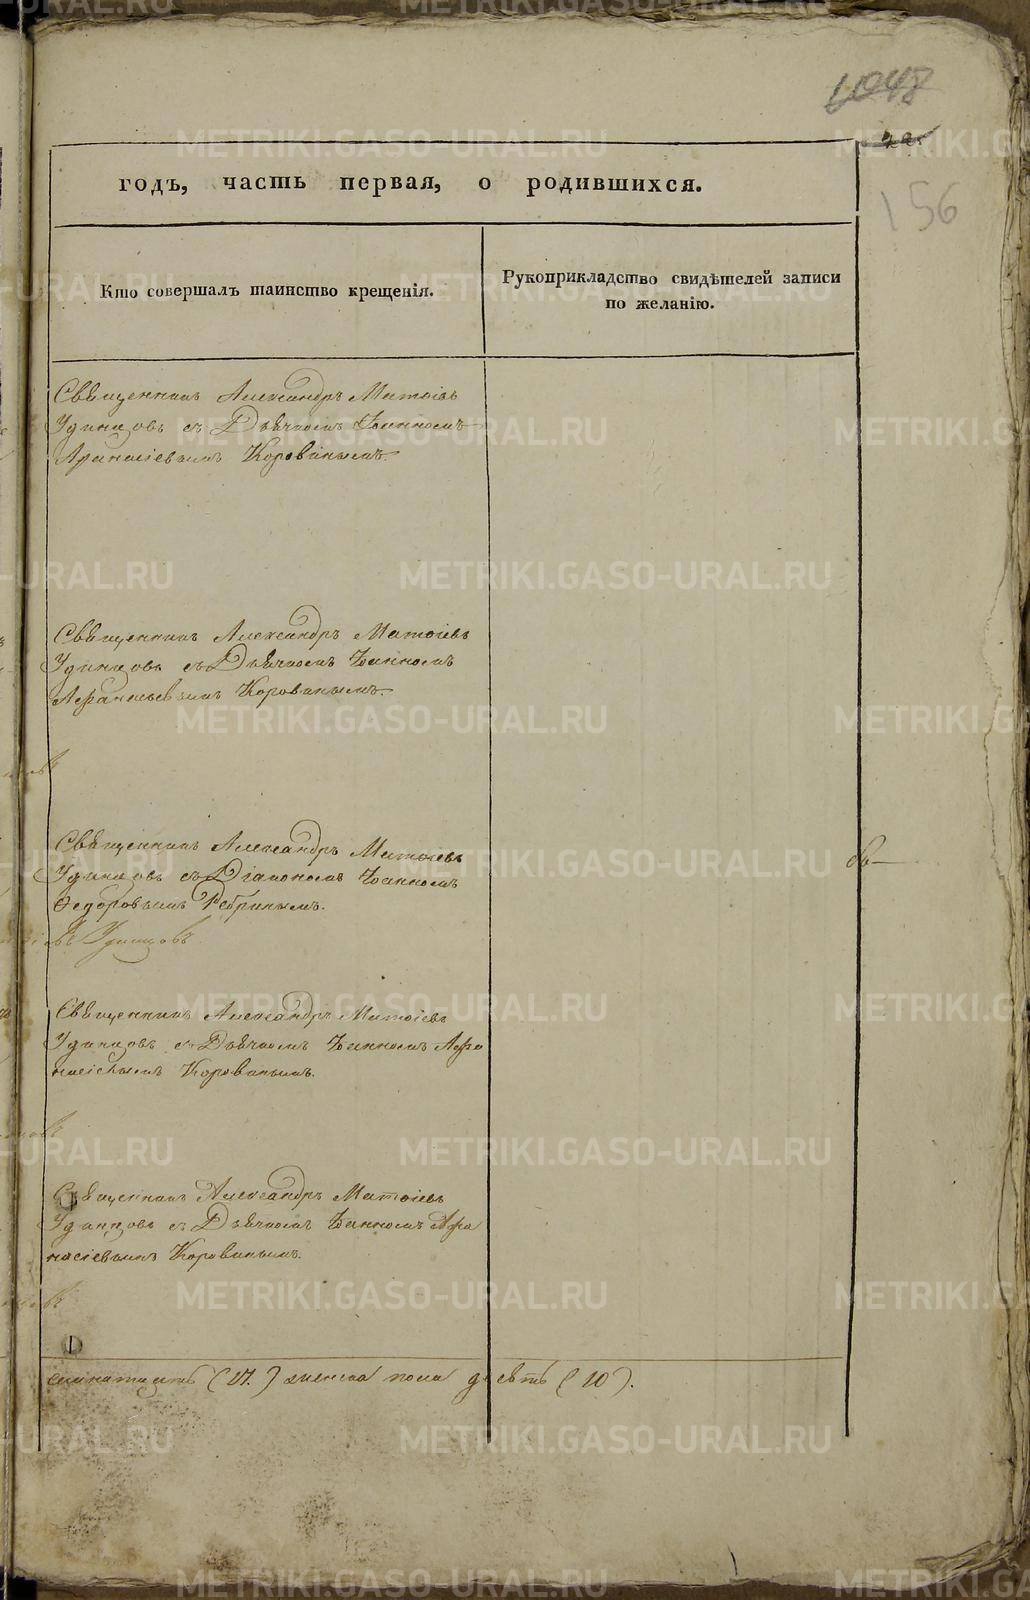 1048
42.
156
годъ, часть первая, о родившихся.
Кто совершалъ таинство крещенія.
Рукоприкладство свидѣтелей записи
по желанію.
Священникъ Александръ Матѳіевъ
Удинцовъ съ Дьячкомъ Іоанномъ
Аѳанасіевымъ Корованымъ.
Священникъ Александръ Матѳіевъ
Удинцовъ съ Дьячкомъ Іоанномъ
Аѳанасьевымъ Корованымъ.
Священникъ Александръ Матѳіевъ
Удинцовъ съ Діакономъ Іоанномъ
Ѳедоровымъ Ребринымъ.
Удинцовъ
Священникъ Александръ Матѳіевъ
Удинцовъ съ Дьячкомъ Іоанномъ Аѳа
насіевымъ Корованымъ.
Священникъ Александръ Матѳіевъ
Удинцовъ съ Дьячкомъ Іоанномъ Аѳа
насіевымъ Корованымъ.
(17.) женска пола (10).
METRIKI.GASO-URAL.RU